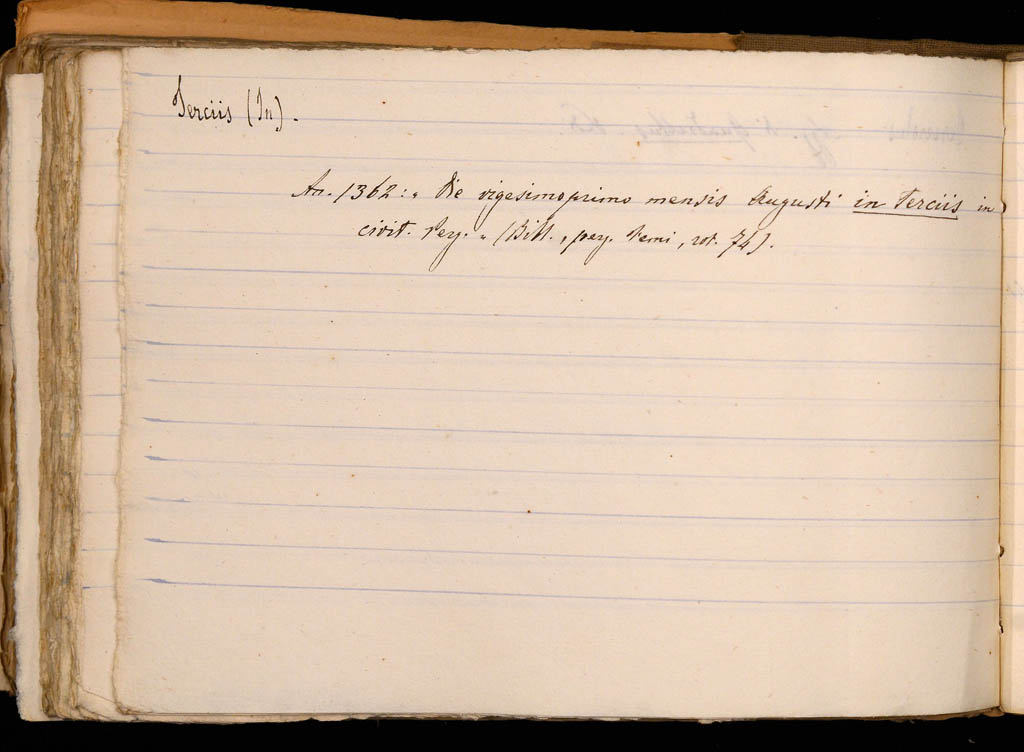 Terciis (In).
An. 1362: „ Die vigesimoprimo mensis Augusti in Terciis in
civit. Reg. „ (Bibl., perg. Temi, rot. 74).